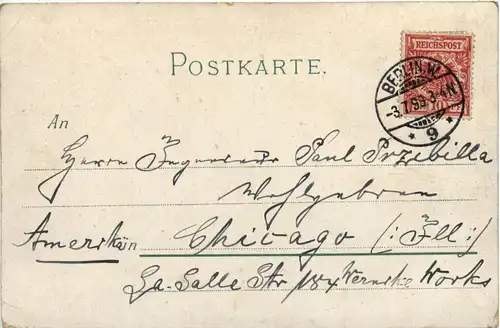 REICHSPOST
POSTKARTE.
BERLIN.W.
-3.7.99.3-4N
* 9 *
An
Herrn Ingenieur Paul Przebilla
Wohlgeboren
Amerika
Chicago (:Ill:)
La-Salle Str 184 Works